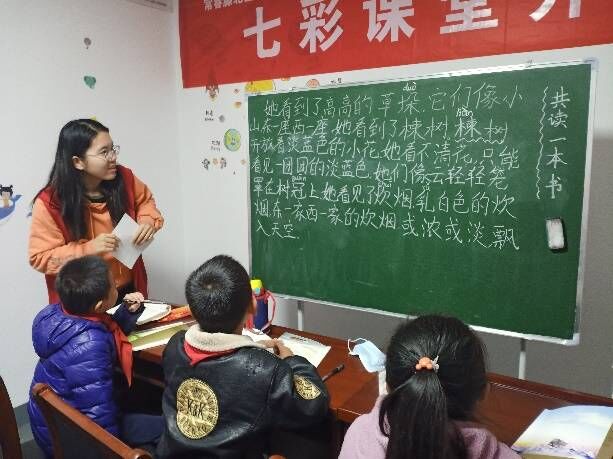 七彩课堂开
duò
她看到了高高的草垛,它们像小
山东一座西一座,她看到了楝树,楝树
开着淡蓝色的小花她看不清花,只能
看见一团团的淡蓝色,她们像云轻轻笼
罩在树冠上,她看见了炊烟,乳白色的炊
烟,东一家西一家的炊烟,或浓或淡飘
入天空.
共读一本书